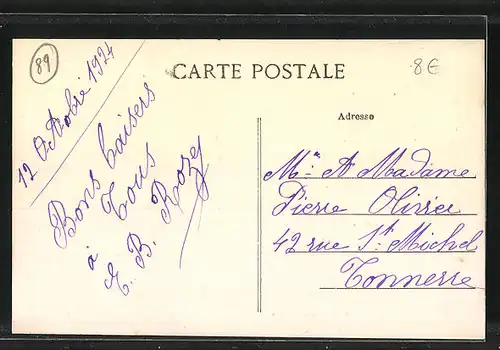 89
CARTE POSTALE
8€
Adresse
12 Octobre 1924
Bons baisers
à Tous
E. B. Roze
Mr A Madame
Pierre Olivier
42 rue St Michel
Tonnerre